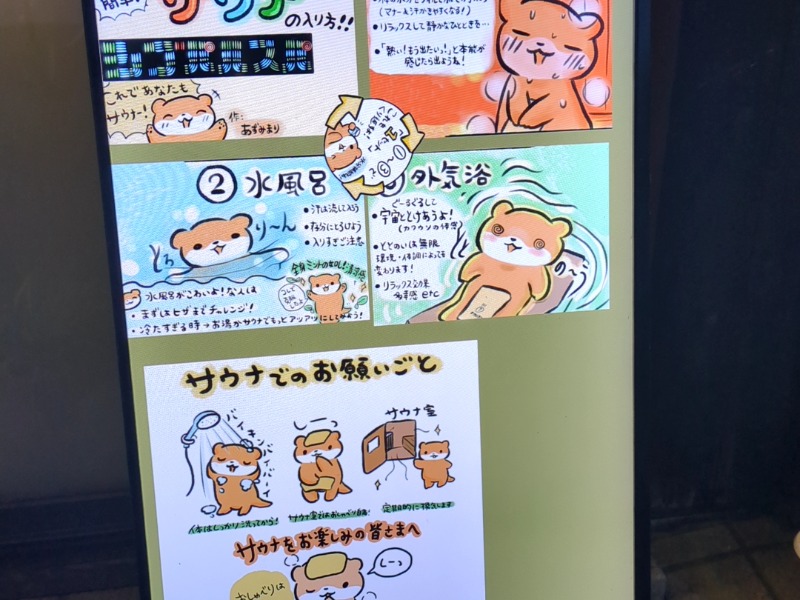 簡単！
サウナ
の入り方!!
これであなたも
サウナー！
作：
あずみまり
(マナー&汗かきやすくなる！)
・リラックスして静かなひとときを…
・「熱い！もう出たい！」と本能が
感じたら出ようね！
①〜③を
② 水風呂
・汗は流して入ろう
・存分にとろけよう
・入りすぎご注意
とろ
り〜ん
水風呂がこわいよ！な人は
・まずはヒザまでチャレンジ！
・冷たすぎる時→お湯かサウナでもっとアツアツにしてみよう！
外気浴
ぐーるぐるして
・宇宙ととけあうよ！
・ととのいは無限
環境・体調によっても
変わります！
・リラックス効果
多幸感 etc
の〜
サウナでのお願いごと
バイキンバイバーイ
しーっ
サウナ室
体はしっかり洗ってから！
サウナ室ではおしゃべり
定期的に換気します
サウナをお楽しみの皆さまへ
おしゃべりは
しーっ